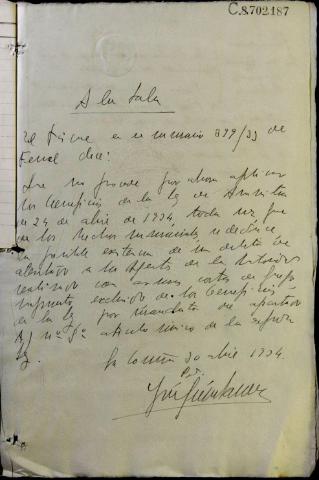 C.8.702.187
A la Sala
El Fiscal en el sumario 379/33 de
Ferrol dice:
Que no procede por ahora aplicar
los beneficios de la ley de Amnistía
de 24 de abril de 1934 toda vez que
de los hechos sumariales se deduce
la posible existencia de un delito de
atentado a los Agentes de la Autoridad
realizado con armas cortas de fuego
excluido de los beneficios
de la ley por de apartado
nº 9º artículo único de la
ley.
La Coruña 30 abril 1934.